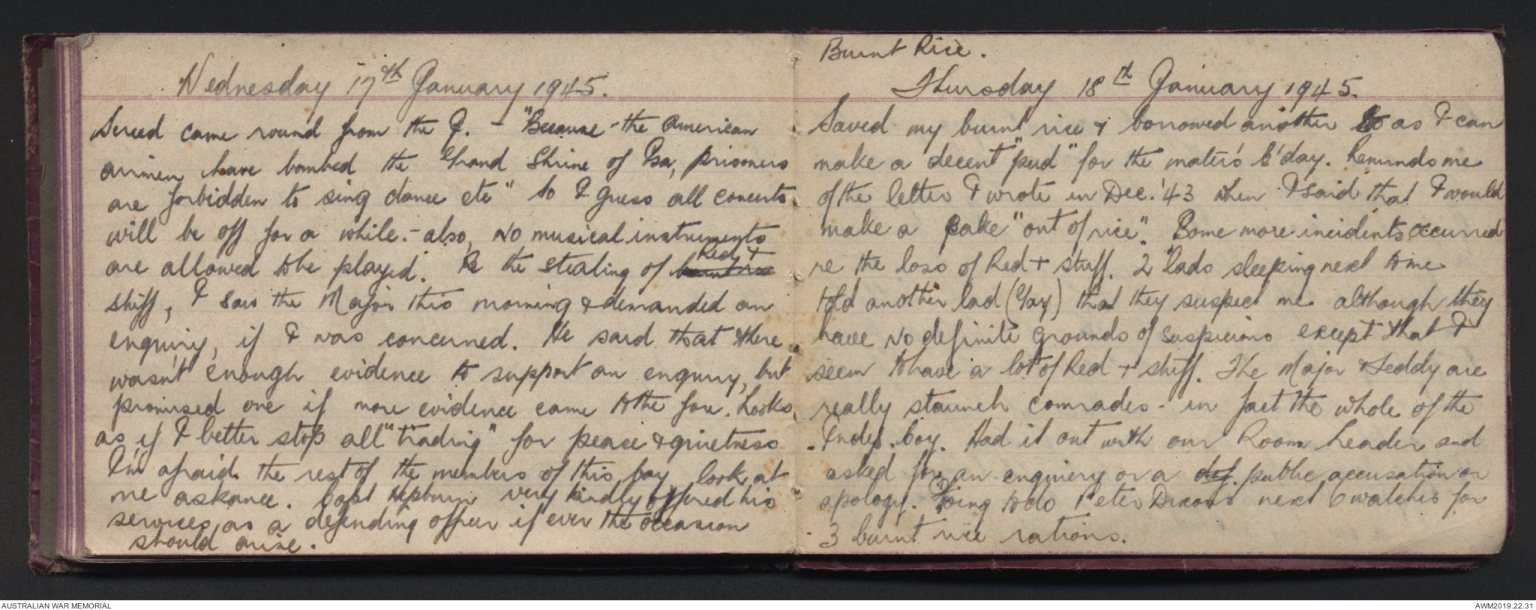 Wednesday 17th January 1945.
Screed came round from the J. - "Because the American
airmen have bombed the Grand Shrine of Isa, prisoners
are forbidden to sing dance etc" So I guess all concerts
will be off for a while. - also, no musical instruments
are allowed to be played. Re the stealing of burnt rice Red +
stuff, I saw the Major this morning & demanded an
enquiry, if I was concerned. He said that there
wasn't enough evidence to support an enquiry, but
promised one if more evidence came to the fore. Looks
as if I better stop all "trading" for peace & quietness
I'm afraid the rest of the members of this bay look at
me askance. Capt Hepburn very kindly offered his
services as a defending officer if ever the occasion
should arise.
Burnt Rice.
Thursday 18th January 1945.
Saved my burnt rice & borrowed another so as I can
make a decent "pud" for the mater's B'day. Reminds me
of the letter I wrote in Dec. '43 when I said that I would
make a cake "out of rice". Some more incidents occurred
re the loss of Red + stuff. 2 lads sleeping next to me
told another lad that they suspect me although they
have no definite grounds of suspicions except that I
seem to have a lot of Red + stuff. The Major & Teddy are
really staunch comrades - in fact the whole of the
Indep. Coy. Had it out with our Room Leader and
asked for an enquiry or a def. public accusation or
apology. Going to do Peter next 6 watches for
3 burnt rice rations.
AUSTRALIAN WAR MEMORIAL
AWM2019.22.31